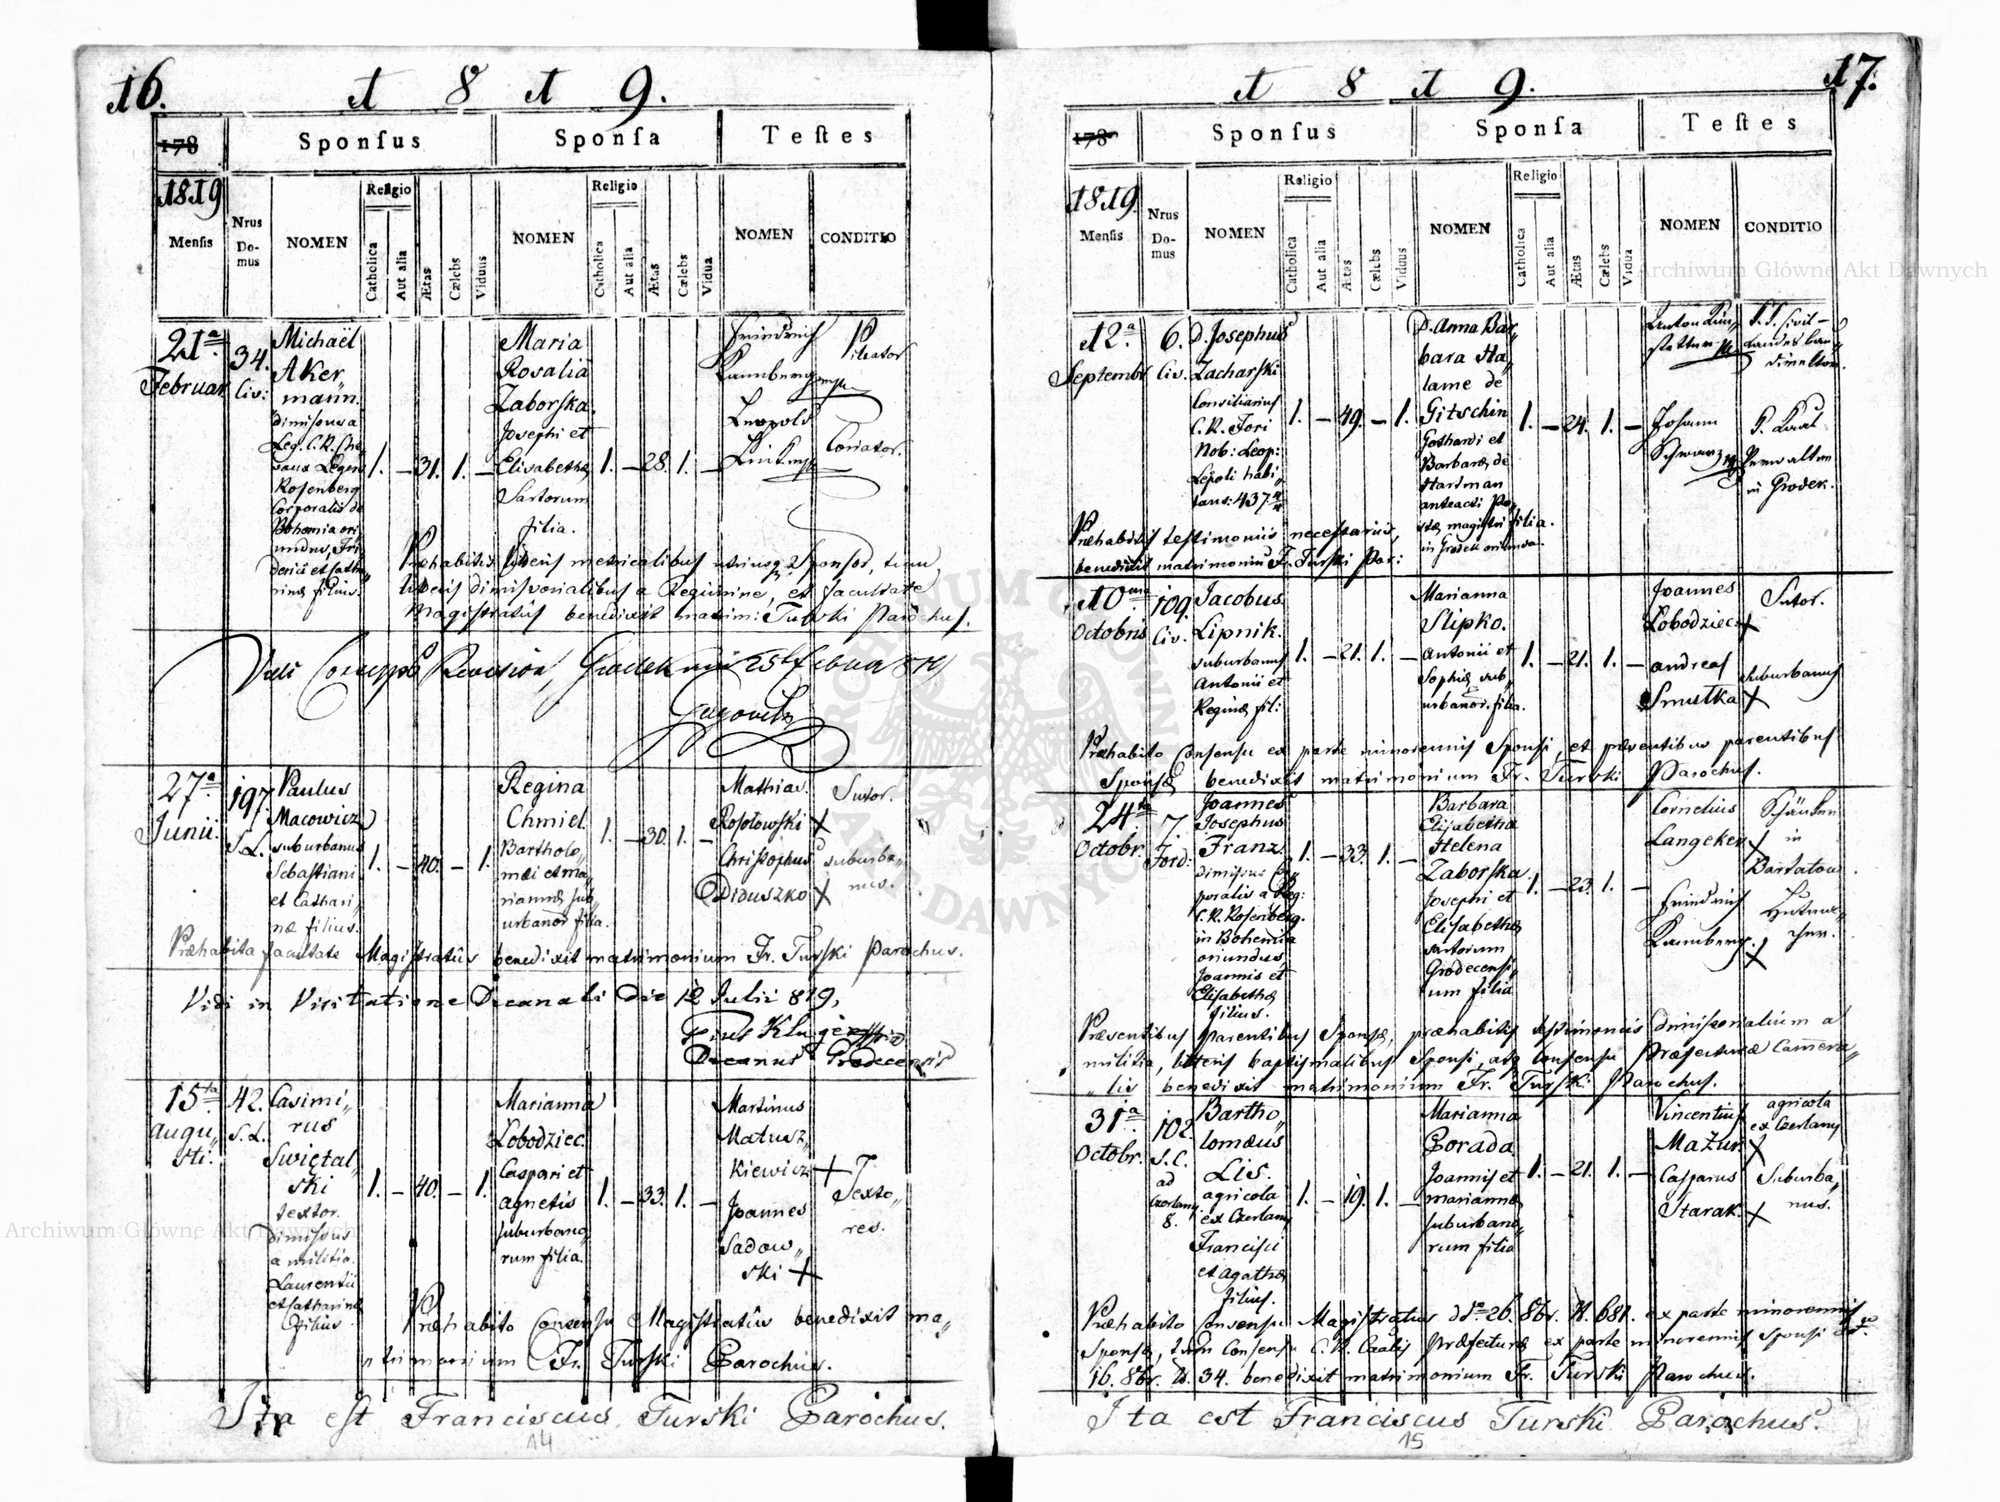 16.
1 8 1 9.
178
Sponſus
Sponſa
Teſtes
1819
Menſis
Nrus Do-mus
NOMEN
Religio
Catholica
Aut alia
Ætas
Cælebs
Viduus
NOMEN
Religio
Catholica
Aut alia
Ætas
Cælebs
Vidua
NOMEN
CONDITIO
21a
Februar
34.
Civ:
Michaël
Aker„
mann.
dimissus a
Leg. C.R.
Rosenberg
Corporalis de
Bohemia ori„
undus, Fri„
derici et Catha„
rinæ filius.
1. – 31. 1. –
Maria
Rosalia
Zaborſka.
Josephi et
Elisabethæ
Sartorum
filia.
1. – 28. 1. –
Friedrich
Rannberg
Leopold
Pileator
Coriator.
Præhabitis literis metricalibus utriusq. Sponsor, tum
literis dimissorialibus a Regimine, et facultate
Magistratus benedixit matrim: Turſki Parochus.
27a
Junii.
197.
S.L.
Paulus
Macowicz
suburbanus
Sebastiani
et Cathari„
næ filius.
1. – 40. – 1.
Regina
Chmiel
Bartholo„
mæi et Ma„
riannæ sub„
urbanor filia.
1. – 30. 1. –
Mathias
Rosołowski +
Christophus
Diduszko +
Sutor.
suburba„
nus.
Præhabita facultate Magistratûs benedixit matrimonium Fr. Turſki Parochus.
Vidi in Visitatione Decanali die 12 Julii 819,
Decanus Grodecensis
15ta
Augu„
sti.
42.
S.L.
Casimi„
rus
Swiętal„
ski
textor.
Dimissus
a militia.
Laurentii
et Catharinæ
filius
1. – 40. – 1.
Marianna
Łobodziec
Caspari et
Agnetis
suburbano„
rum filia.
1. – 33. 1. –
Martinus
Matusz„
kiewicz +
Joannes
Sadow„
ski +
Texto„
res.
Præhabito Consensu Magistratûs benedixit ma„
„trimonium Fr. Turſki Parochus.
Ita est Franciscus Turski Parochus.
14
17.
1 8 1 9.
178
Sponſus
Sponſa
Teſtes
1819.
Menſis
Nrus Do-mus
NOMEN
Religio
Catholica
Aut alia
Ætas
Cælebs
Viduus
NOMEN
Religio
Catholica
Aut alia
Ætas
Cælebs
Vidua
NOMEN
CONDITIO
12a
Septembr
6.
Civ.
D. Josephus
Zacharſki
Consiliarius
C.R. Fori
Nob: Leop:
Lepoli habi„
tans: 437.
1. – 49. – 1.
D. Anna Bar„
bara Ha„
lame de
Gitschin
Gothardi et
Barbaræ de
Hartman
anteacti Po„
stæ magistri filia.
in Grodek oriunda.
1. – 24. 1. –
Johann
Schwarz
in Grodek.
Præhabitis testimoniis necessariis,
benedixit matrimoniũ Fr. Turski Par:
10ma
Octobris
109.
Civ.
Jacobus
Lipnik.
suburbanus
Antonii et
Reginæ fil:
1. – 21. 1. –
Marianna
Slipko.
Antonii et
Sophiæ sub„
urbanor. filia.
1. – 21. 1. –
Joannes
Łobodziec +
Andreas
Smutka +
Sutor.
suburbanus
Præhabito Consensu ex parte minorennis Sponsi, et præsentibus parentibus
Sponsæ benedixit matrimonium Fr. Turski Parochus.
24ta
Octobr.
7.
Ford.
Joannes
Josephus
Franz.
dimissus Cor„
poralis a Reg:
C.R. Rosenberg.
in Bohemia
oriundus
Joannis et
Elisabethæ
filius.
1. – 33. 1. –
Barbara
Elisabetha
Helena
Zaborſka.
Josephi et
Elisabethæ
sartorum
Grodecensi„
um filia
1. – 23. 1. –
Cornelius
Langeker. +
Friedrich
Rannberg. +
in
Bartatow
Præsentibus parentibus Sponsæ, præhabitis testimoniis dimissorialium a
militia, literis baptismalibus Sponsi, atq Consensu Præfecturæ Camera„
„lis benedixit matrimonium Fr. Turski Parochus.
31a
Octobr.
102.
S.C.
ad
Czerlany
8.
Bartho„
lomæus
Lis.
agricola
ex Czerlany
Francisci
et Agathæ
filius.
1. – 19. 1. –
Marianna
Porada.
Joannis et
Mariannæ
suburbano„
rum filia
1. – 21. 1. –
Vincentius
Mazur. +
Casparus
Starak. +
agricola
ex Czerlany
Suburba„
nus.
Præhabito Consensu Magistratus ddo 26. 8br. N. 681. ex parte minorennis
Sponsæ, tum Consensu C.R. Caalis Præfecturæ ex parte minorennis Sponsi ddo
16. 8br. N. 34. benedixit matrimonium Fr. Turski Parochus.
Ita est Franciscus Turski Parochus.
15
Archiwum Główne Akt Dawnych
Archiwum Główne Akt Dawnych
ARCHIWUM GŁÓWNE AKT DAWNYCH